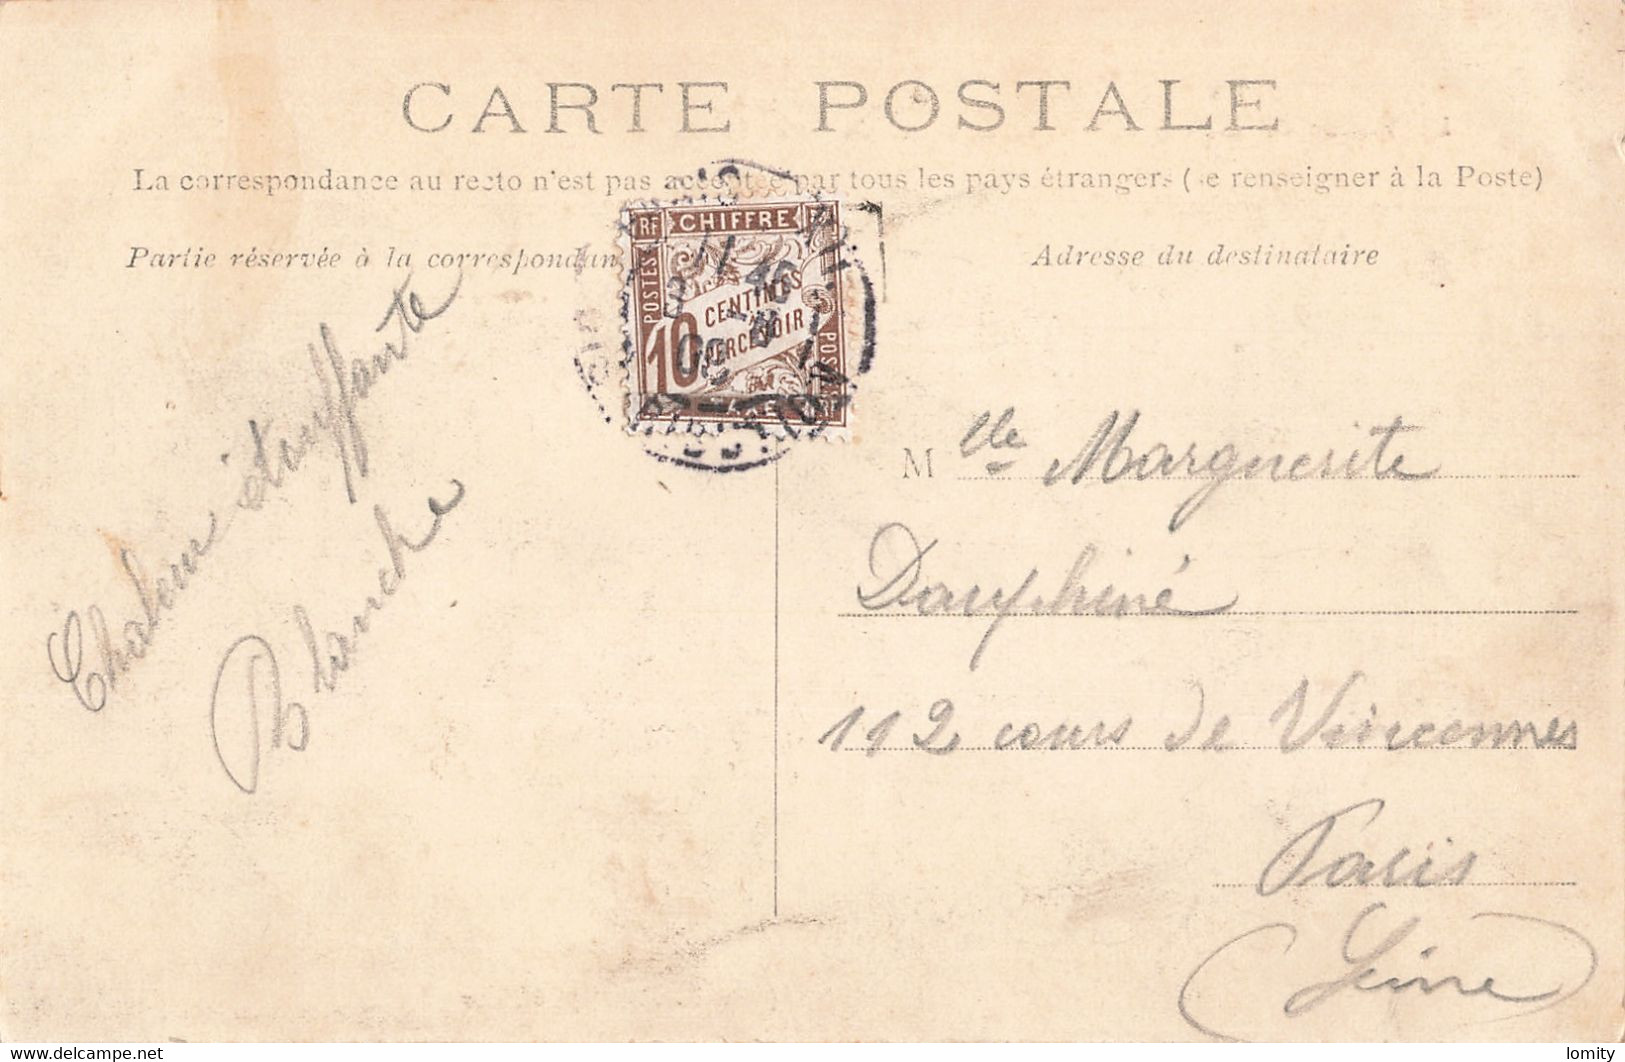 CARTE POSTALE
La correspondance au recto n'est pas acceptée par tous les pays étrangers (se renseigner à la Poste)
Partie réservée à la correspondan
Adresse du destinataire
RF CHIFFRE
POSTES
10 CENTIMES
À
PERCEVOIR
POSTES
TAXE RF
Chaleur étouffante
Blanche
M lle Marguerite
Dauphiné
112 cours de Vincennes
Paris
(Seine)
delcampe.net
lomity